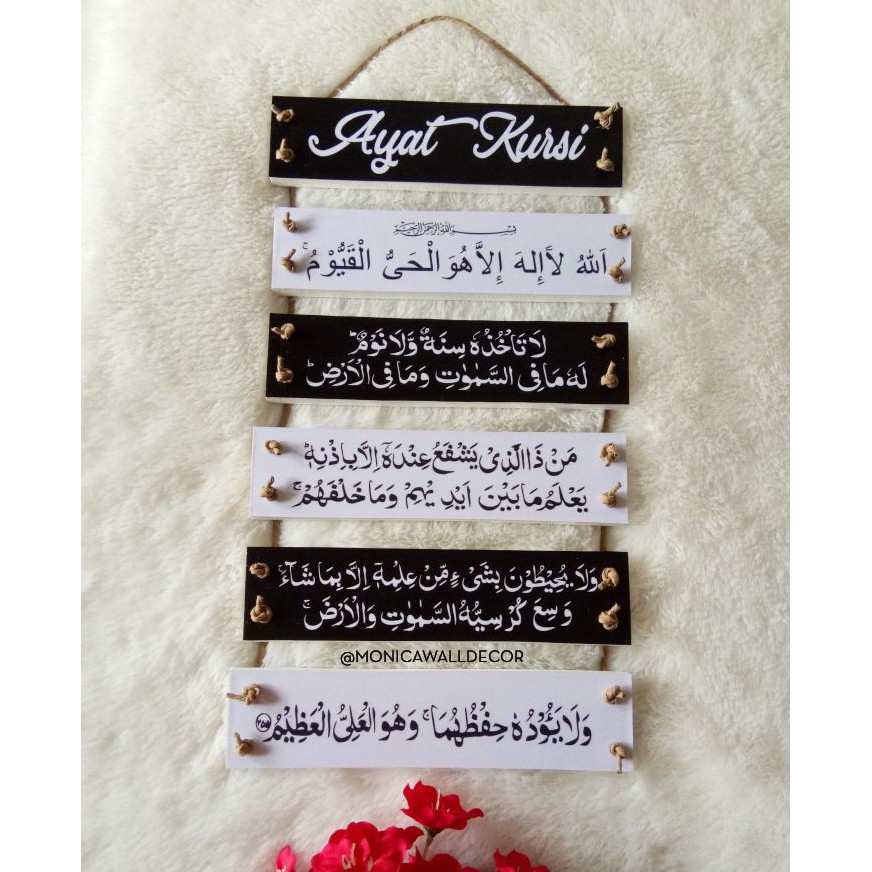 Ayat Kursi
بِسْمِ اللهِ الرَّحْمٰنِ الرَّحِيْمِ
اَللهُ لاَإِلهَ إِلاَّ هُوَ الْحَىُّ الْقَيُّوْمُ ۚ
لَا تَأْخُذُهٗ سِنَةٌ وَّلَا نَوْمٌ ۗ
لَهٗ مَا فِى السَّمٰوٰتِ وَمَا فِى الْاَرْضِ ۗ
مَنْ ذَا الَّذِيْ يَشْفَعُ عِنْدَهٗٓ اِلَّا بِاِذْنِهٖ ۗ
يَعْلَمُ مَا بَيْنَ اَيْدِ يْهِمْ وَمَا خَلْفَهُمْ ۚ
وَلَا يُحِيْطُوْنَ بِشَىْ ءٍ مِّنْ عِلْمِهٖٓ اِلَّا بِمَا شَآءَ ۚ
وَسِعَ كُرْسِيُّهُ السَّمٰوٰتِ وَالْاَرْضَ ۚ
@MONICAWALLDECOR
وَلَا يَـُٔوْدُهٗ حِفْظُهُمَا ۚ وَهُوَ الْعَلِيُّ الْعَظِيْمُ ٢٥٥